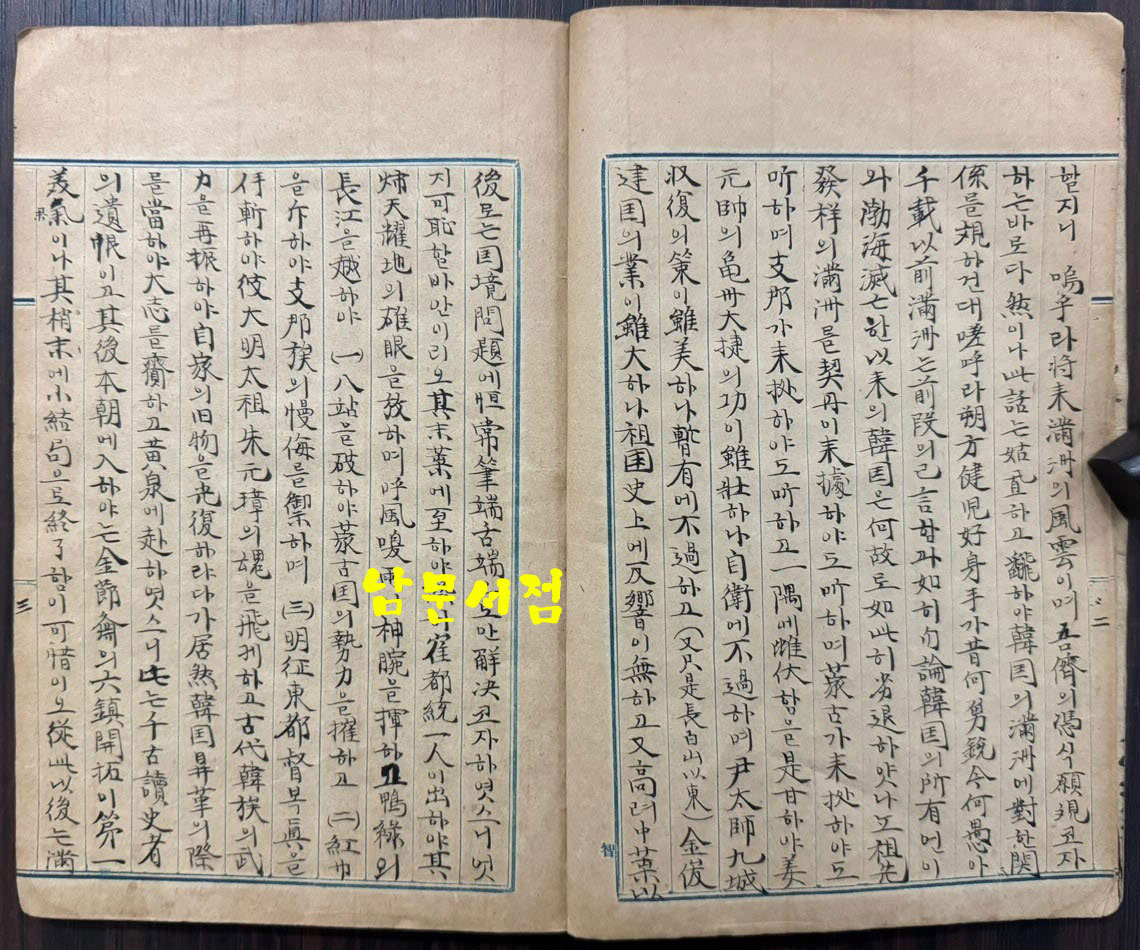 할지니 嗚乎라將来滿洲의風雲이며吾儕의憑式願規코자
하는바로다然이나此話는姑置하고飜하야韓国의滿洲에對한関
係를覌하건대嗟呼라朔方健児好身手가昔何勇銳今何愚아
千載以前滿洲는前段의已言함과如히勿論韓国의所有언이
와渤海滅亡한以来의韓国은何故로如此히劣退하얏나뇨祖先
發祥의滿洲를契丹이来據하야도听하며蒙古가来據하야도
听하며支那가来據하야도听하고一隅에雌伏함을是甘하야姜
元帥의亀州大捷의功이雖壯하나自衛에不過하며尹太師九城
収復의策이雖美하나暫有에不過하고(又只是長白山以東)金俊
建国의業이雖大하나祖国史上에反響이無하고又高麗中葉以
二
智
後로는国境問題에恒常筆端舌端으로만解決코자하엿스니엇
지可恥할바안이리오其末葉에至하야崔都統一人이出하야其
炳天耀地의雄眼을放하며呼風喚雨神腕을揮하고鴨綠의
長江을越하야 (一)八站을破하야蒙古国의勢力을摧하고 (二)紅巾
을斥하야支那族의慢侮를禦하며 (三)明征東都督某眞을
俘斬하야彼大明太祖朱元璋의魂을飛케하고古代韓族의武
力을再振하야自家의旧物을光復하랴다가居然韓国昇華의際
를當하야大志를齎하고黃泉에赴하엿스니此는千古讀史者
의遺恨이고其後本朝에入하야는金節齋의六鎭開拓이第一
美氣이나其梢末에小結局으로終了함이可惜이오從此以後는滿
果
三
남문서점